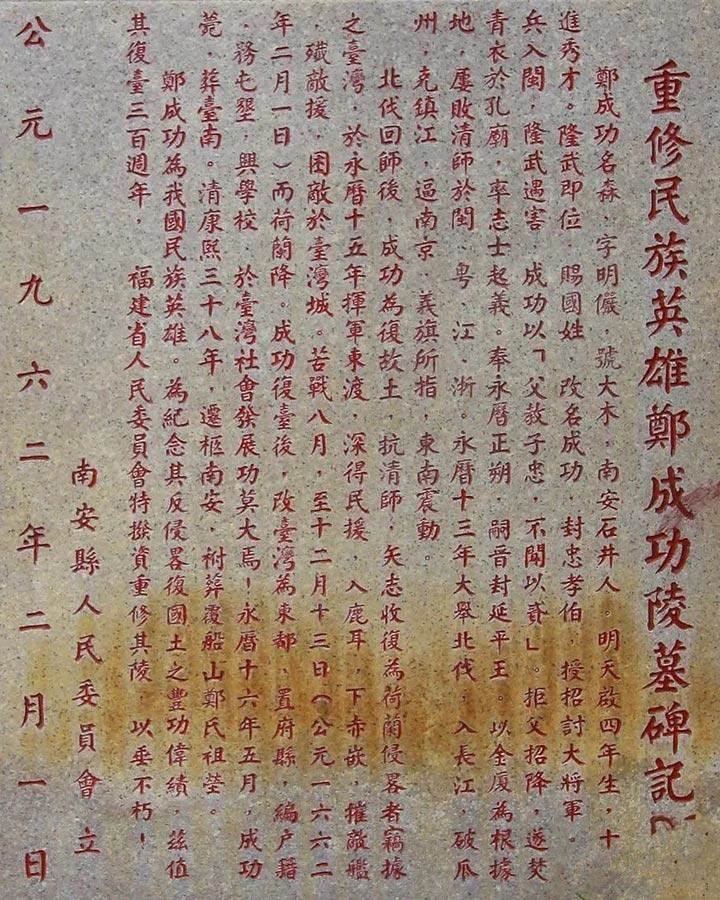 重修民族英雄鄭成功陵墓碑記
鄭成功名森，字明儼，號大木，南安石井人。明天啟四年生，十
進秀才。隆武即位，賜國姓，改名成功，封忠孝伯，授招討大將軍。
兵入閩，隆武遇害，成功以「父教子忠，不聞以貳」。拒父招降，遂焚
青衣於孔廟，率志士起義。奉永曆正朔，嗣晉封延平王。以金廈為根據
地，屢敗清師於閩、粵、江、浙。永曆十三年大舉北伐，入長江，破瓜
州，克鎮江，逼南京，義旗所指，東南震動。
北伐回師後，成功為復故土，抗清師，矢志收復為荷蘭侵畧者竊據
之臺灣，於永曆十五年揮軍東渡，深得民援，入鹿耳，下赤嵌，摧敵艦
，殲敵援，困敵於臺灣城。苦戰八月，至十二月十三日（公元一六六二
年二月一日）而荷蘭降。成功復臺後，改臺灣為東都，置府縣，編户籍
，務屯墾，興學校，於臺灣社會發展功莫大焉！永曆十六年五月，成功
薨，葬臺南。清康熙三十八年，遷柩南安，祔葬覆船山鄭氏祖塋。
鄭成功為我國民族英雄。為紀念其反侵畧復國土之豐功偉績，兹值
其復臺三百週年，福建省人民委員會特撥資重修其陵，以垂不朽！
南安縣人民委員會立
公元一九六二年二月一日